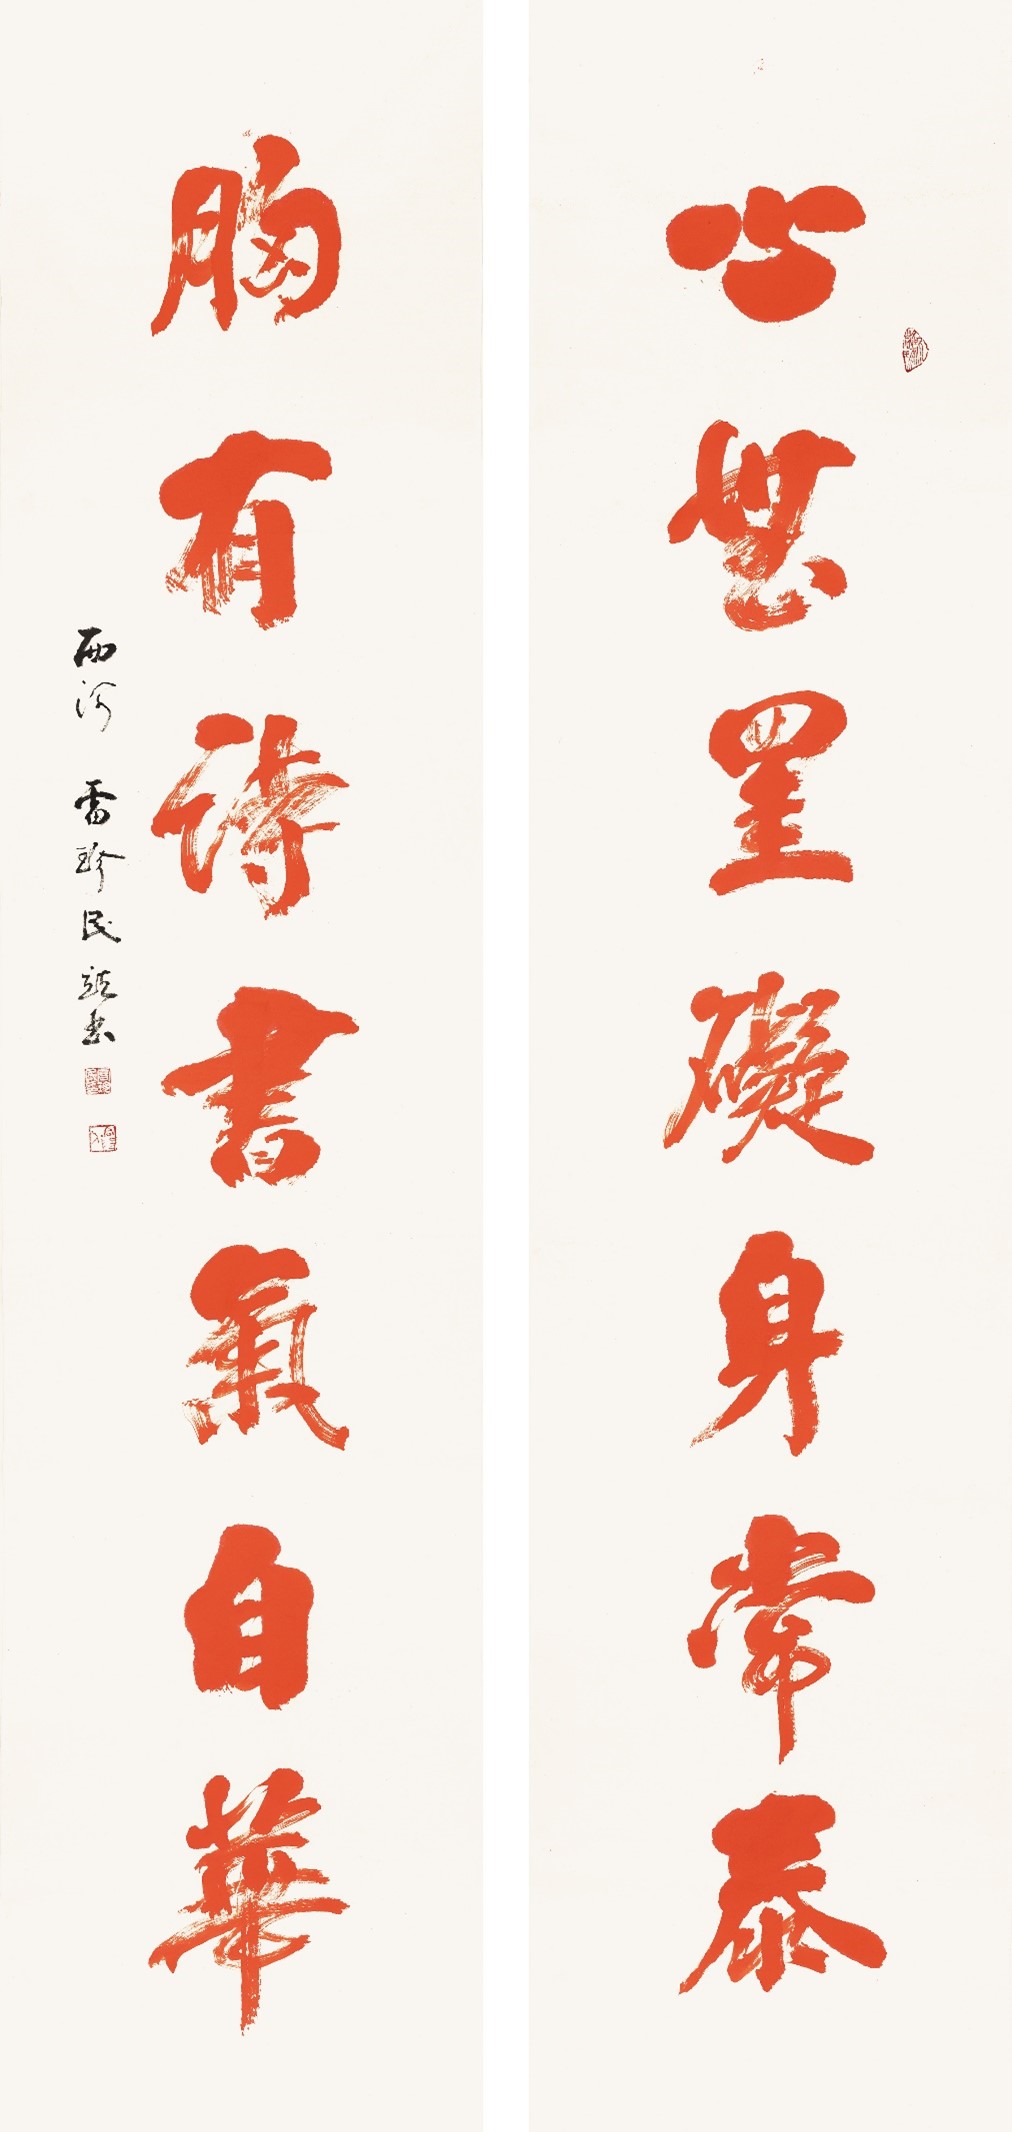 心無罣礙身常泰
胸有詩書氣自華
西河 雷珍民敬書